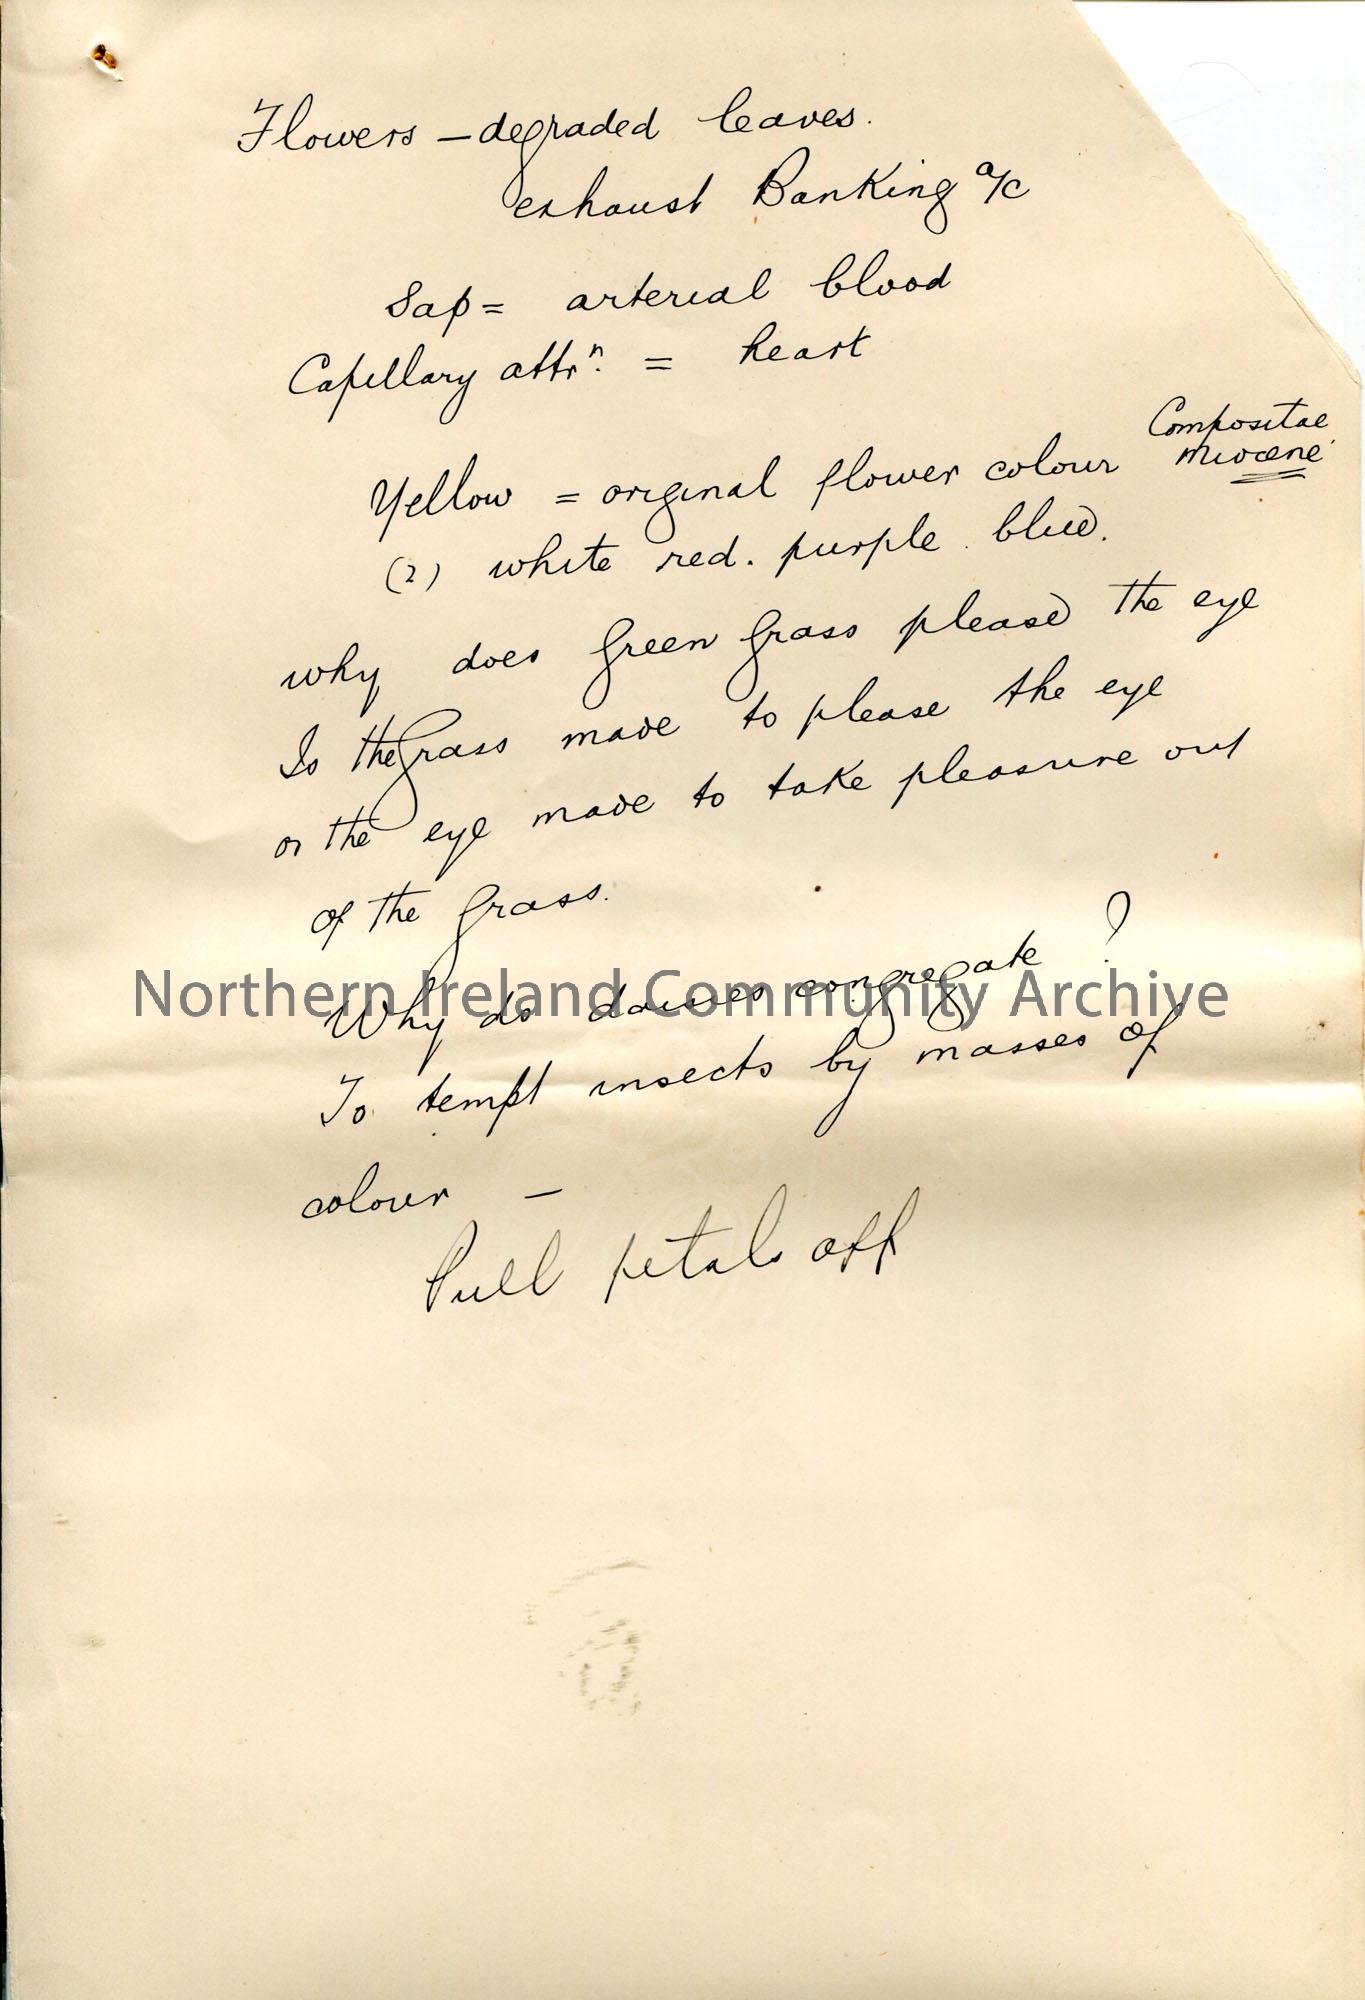 Flowers – degraded leaves.
exhaust Banking a/c
Sap = arterial blood
Capillary attrn. = heart
Compositae
Yellow = original flower colour miocene
(2) white red. purple. blue.
why does green grass please the eye
Is the grass made to please the eye
or the eye made to take pleasure out
of the grass.
Why do daisies congregate ?
Northern Ireland Community Archive
To tempt insects by masses of
colour –
Pull petals off